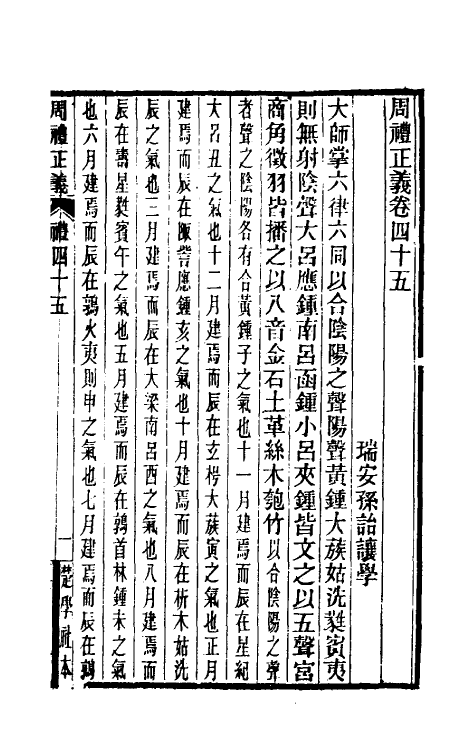 周禮正義卷四十五
瑞安孫詒讓學
大師掌六律六同以合陰陽之聲陽聲黃鍾大蔟姑洗蕤賓夷
則無射陰聲大呂應鍾南呂函鍾小呂夾鍾皆文之以五聲宮
商角徵羽皆播之以八音金石土革絲木匏竹以合陰陽之聲
者聲之陰陽各有合黃鍾子之氣也十一月建焉而辰在星紀
大呂丑之氣也十二月建焉而辰在玄枵大蔟寅之氣也正月
建焉而辰在娵訾應鍾亥之氣也十月建焉而辰在析木姑洗
辰之氣也三月建焉而辰在大梁南呂酉之氣也八月建焉而
辰在壽星蕤賓午之氣也五月建焉而辰在鶉首林鍾未之氣
也六月建焉而辰在鶉火夷則申之氣也七月建焉而辰在鶉
周禮正義 禮四十五 一 楚學社本